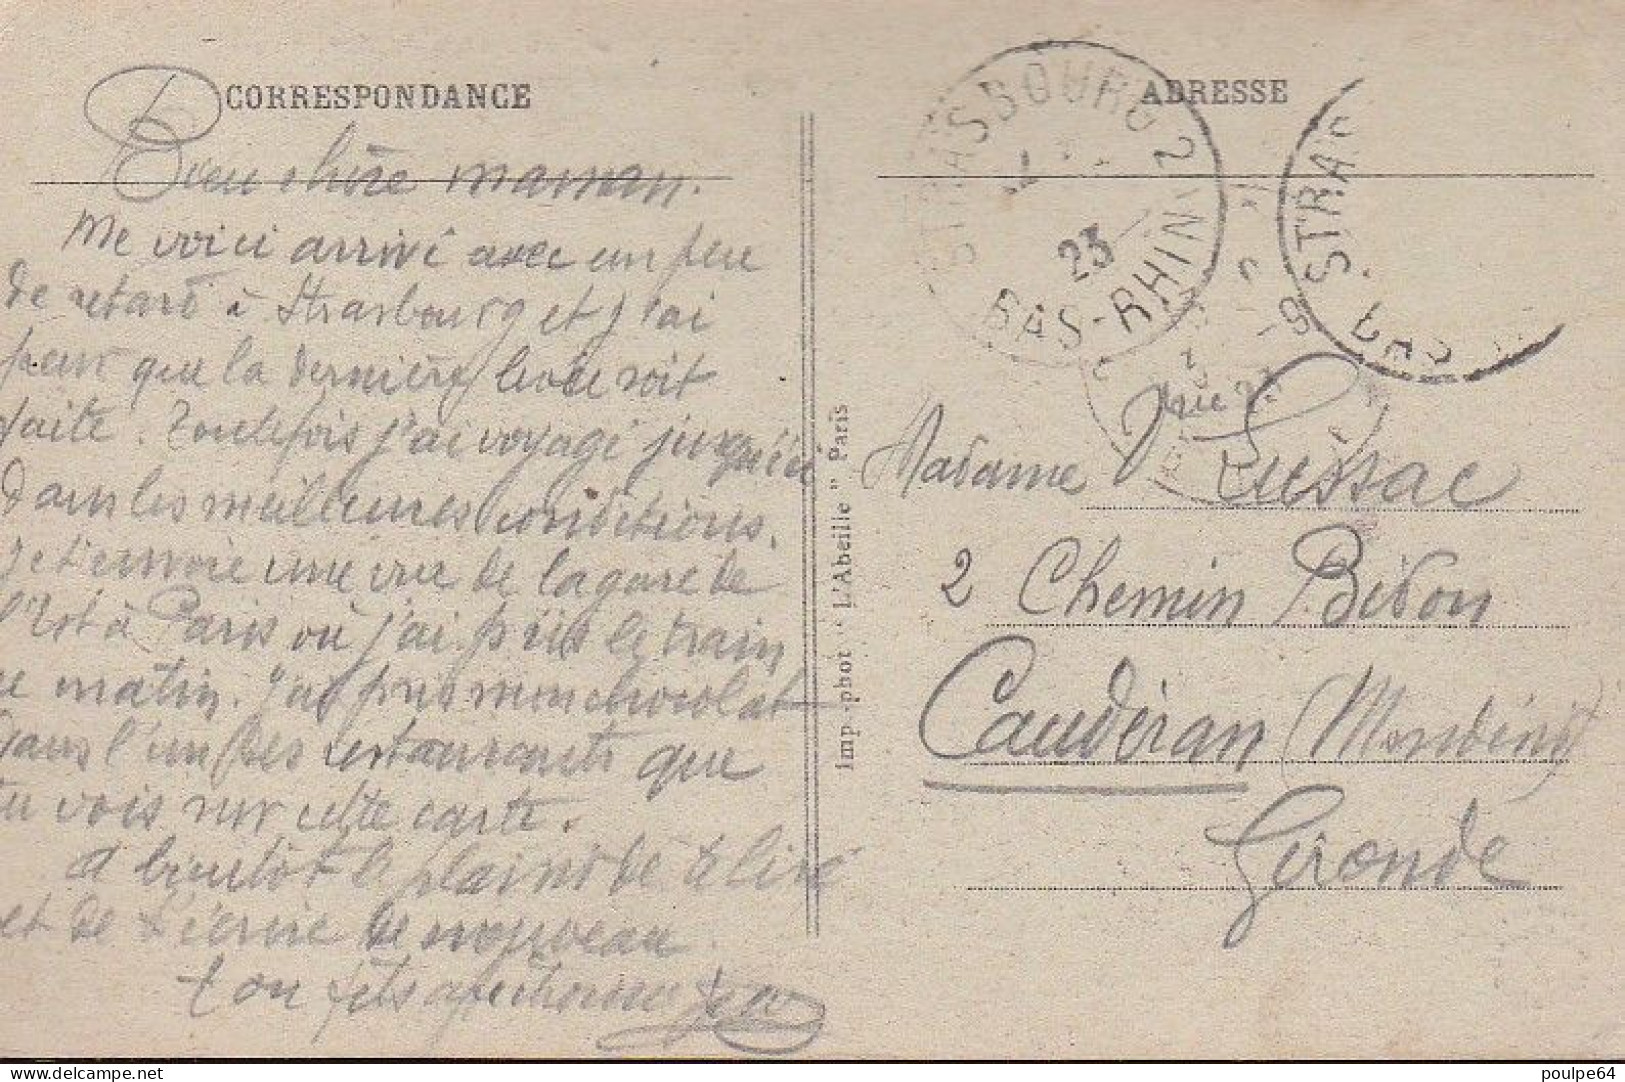 CORRESPONDANCE
6
Bien chère maman.
Me voici arrivé avec un peu
de retard à Strasbourg et j'ai
peur que la dernière levée soit
faite. Toutefois j'ai voyagé jusqu'ici
dans les meilleures conditions.
Je t'envoie une vue de la gare de
l'Est à Paris où j'ai pris le train
ce matin. J'ai pris mon chocolat
dans l'un des restaurants que
tu vois sur cette carte.
A bientôt le plaisir de te lire
et de t'écrire de nouveau
ton fils affectionné Jean
Imp.-phot. "L'Abeille" Paris
ADRESSE
STRASBOURG 2
23
BAS-RHIN
STRAS
BAS
Madame Vve Lussac
2 Chemin Bidon
Caudéran (Mondénis)
Gironde
Delcampe.net
poulpe64